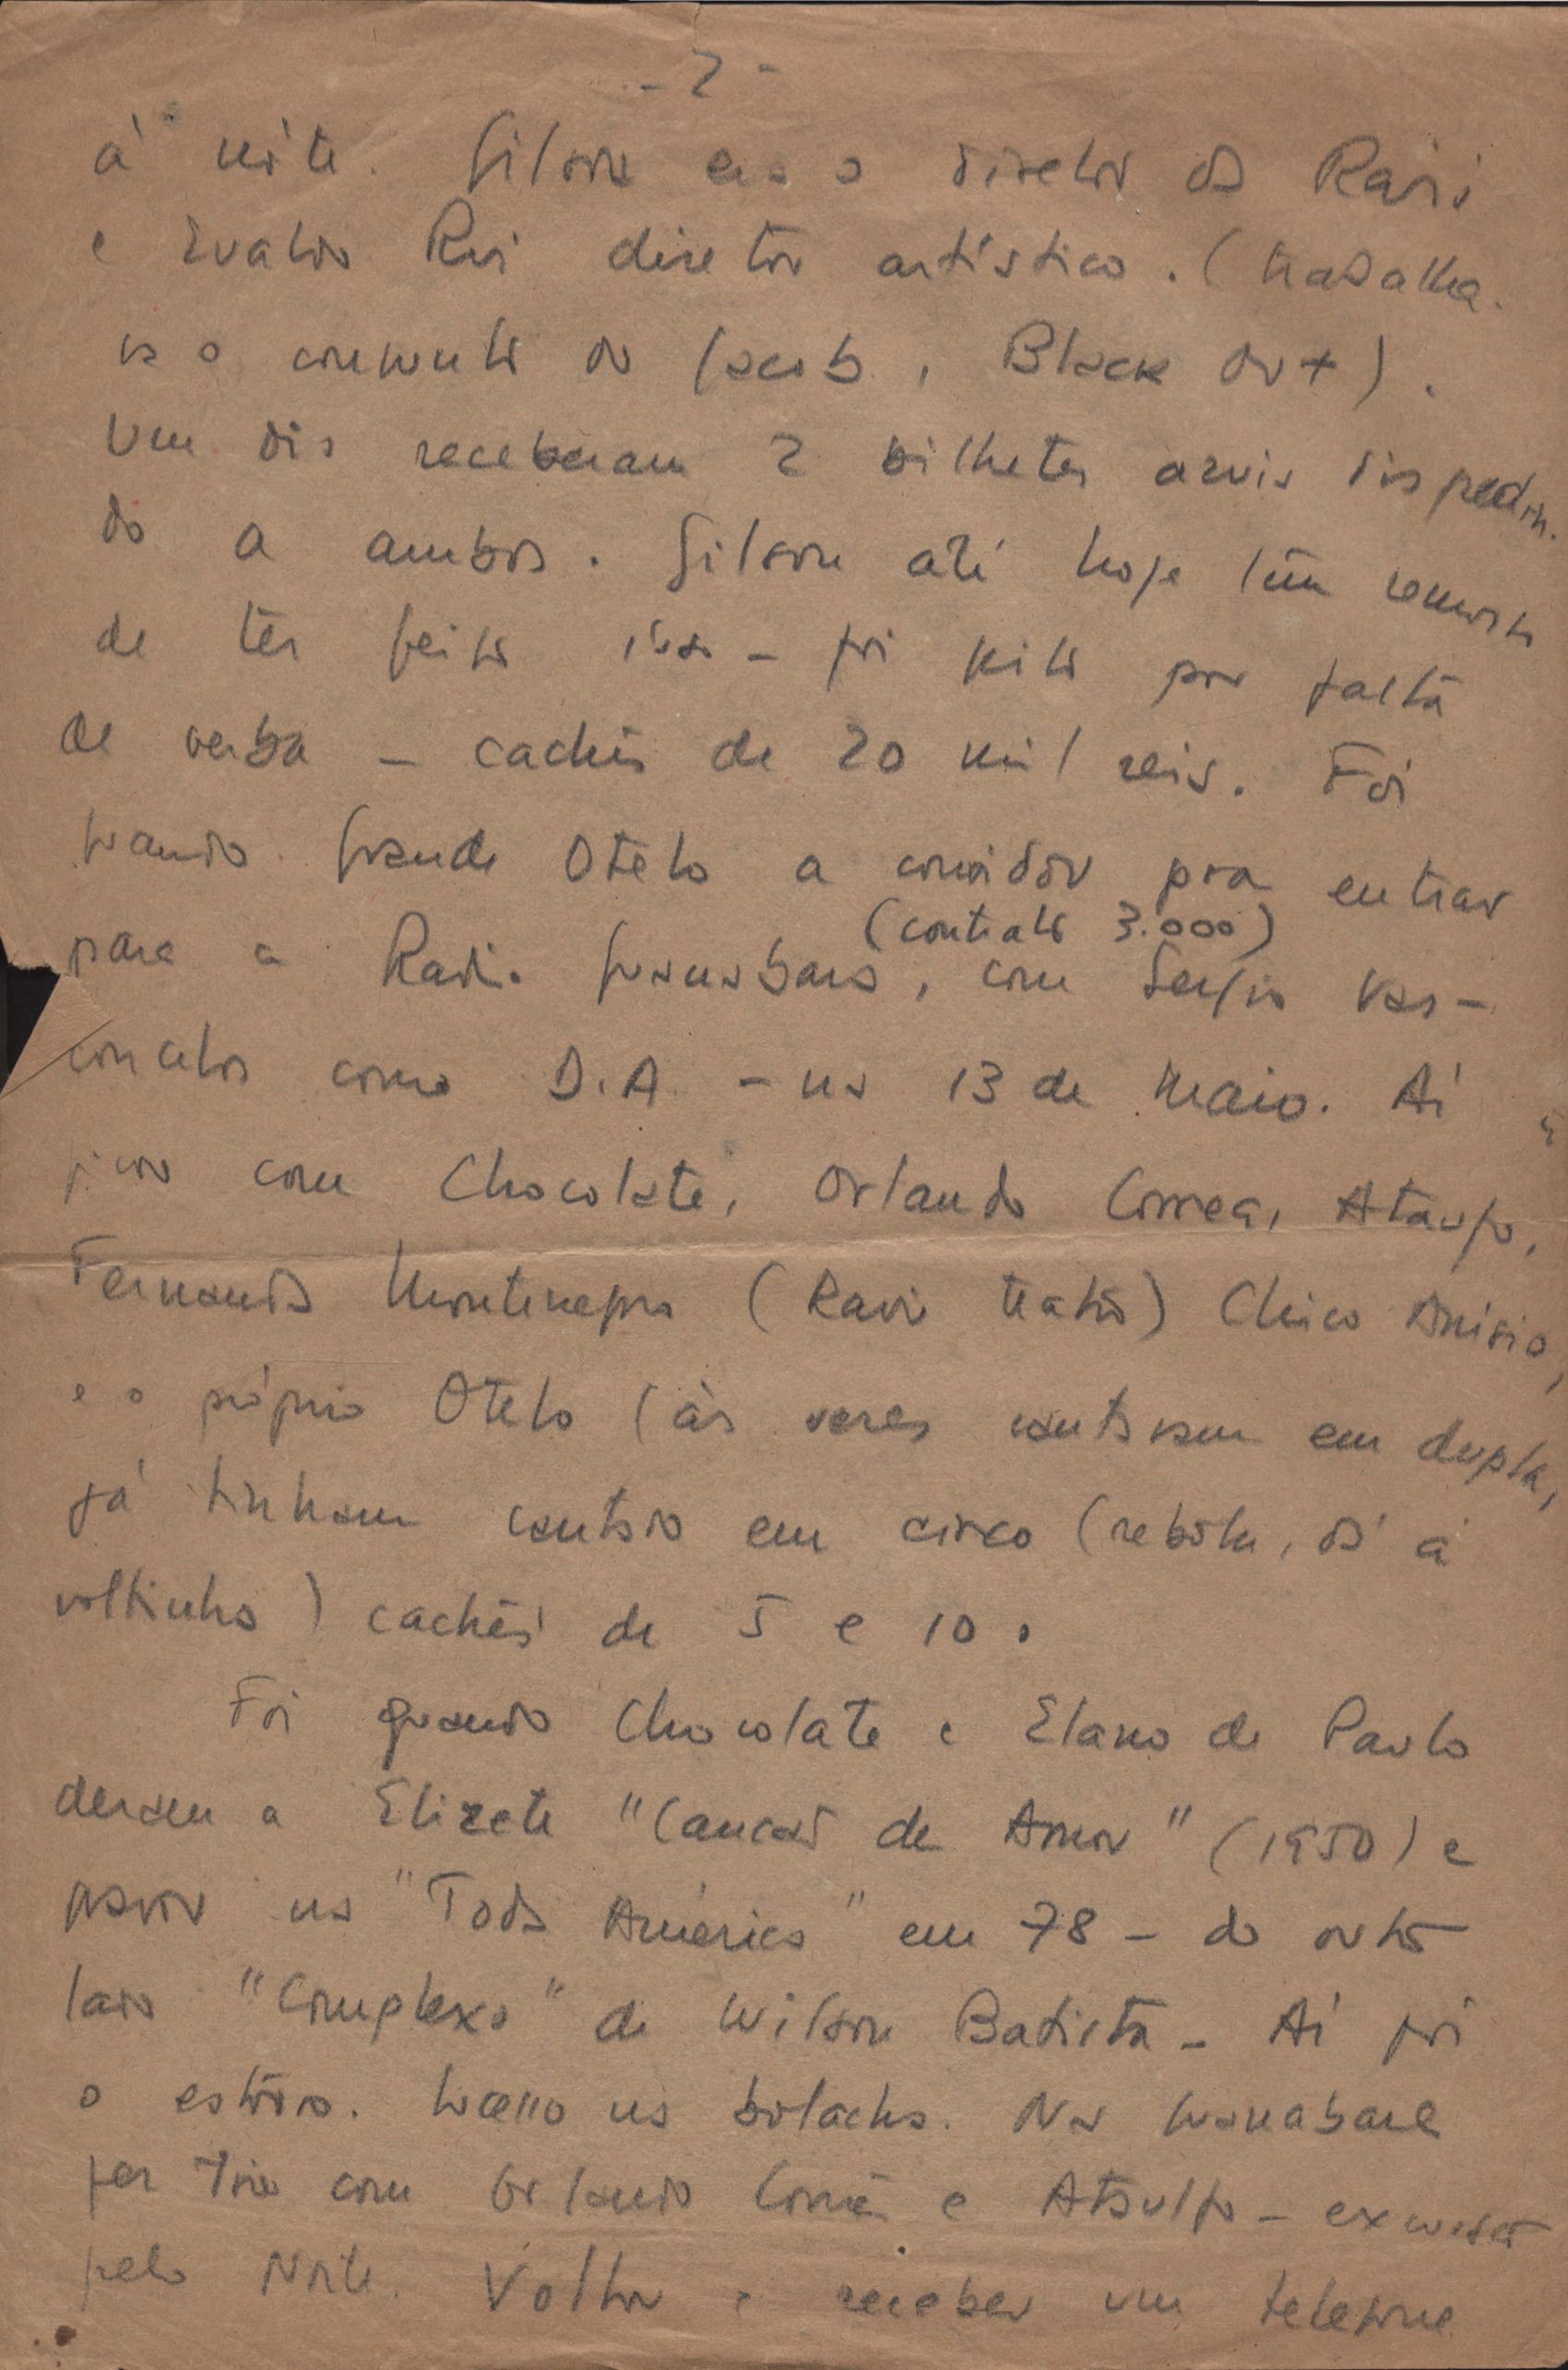 - 2 -
à noite. Gilson era o diretor da Rádio
e Evaldo Rui diretor artístico. (trabalha-
va o conjunto do Jacob, Black Out).
Um dia receberam 2 bilhetes azuis despedin-
do a ambos. Gilson até hoje tem remorso
de ter feito isso - foi feito por falta
de verba - cachês de 20 mil reis. Foi
quando Grande Otelo a convidou pra entrar
(contrato 3.000)
para a Radio Guanabara, com Sergio Vas-
concelos como D.A. - na 13 de Maio. Aí
ficou com Chocolate, Orlando Correa, Ataulfo,
Fernanda Montenegro (Radio teatro) Chico Anisio,
e o próprio Otelo (às vezes cantavam em dupla,
já tinham cantado em circo (rebola, dá a
voltinha) cachês de 5 e 10.
Foi quando Chocolate e Elano de Paulo
deram a Elizete "Canção de Amor" (1950) e
gravou na "Toda América" em 78 - do outro
lado "Complexo" de Wilson Batista - Aí foi
o estouro. na bolacha. Na Guanabara
fez trio com Orlando Correa e Ataulfo - excursão
pelo Norte. Voltou e recebeu um telefone